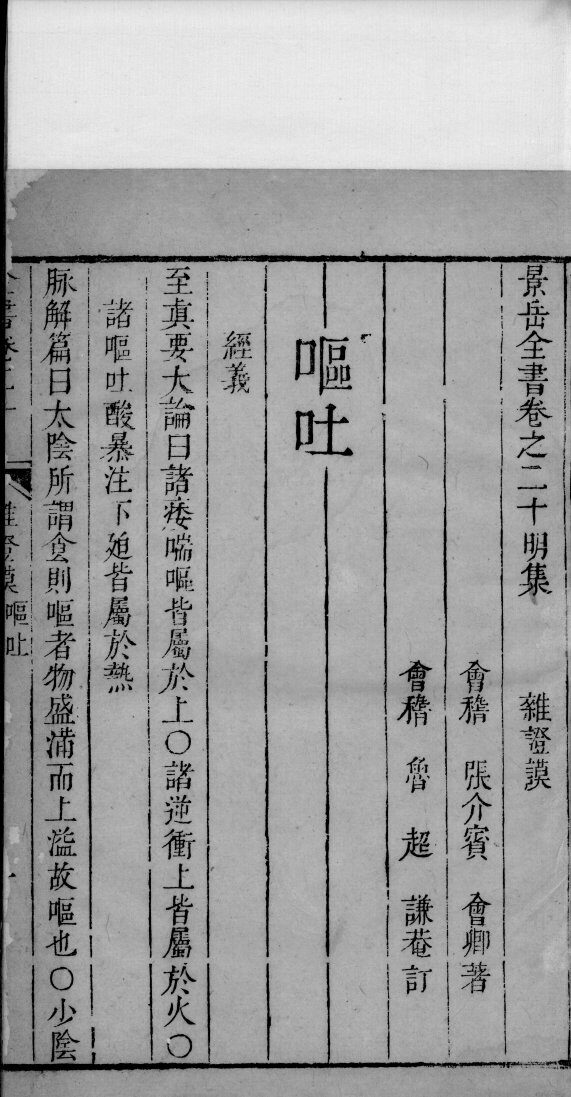 景岳全書卷之二十明集 雜證謨
會稽 張介賓 會卿著
會稽 魯超 謙菴訂
嘔吐
經義
至真要大論曰諸痿喘嘔皆屬於上○諸逆衝上皆屬於火○
諸嘔吐酸暴注下廹皆屬於熱
脉解篇曰太陰所謂食則嘔者物盛滿而上溢故嘔也○少陰
嘔吐